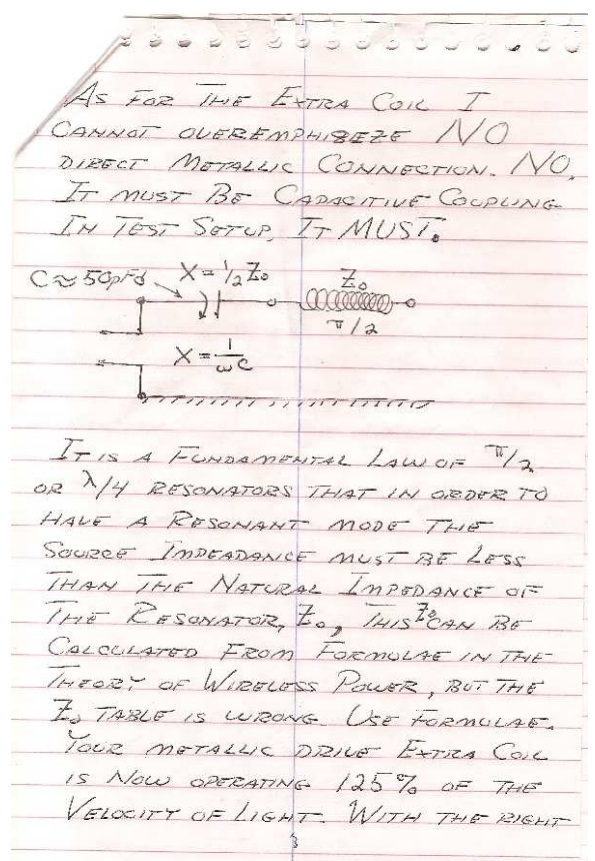 As FOR THE EXTRA COIL I
CANNOT OVEREMPHISEZE NO
DIRECT METALLIC CONNECTION. NO.
IT MUST BE CAPACITIVE COUPLING
IN TEST SETUP, IT MUST.
C≈50pFd X=1/2 Z₀ Z₀
π/2
X = 1/ωC
IT IS A FUNDAMENTAL LAW OF π/2
OR λ/4 RESONATORS THAT IN ORDER TO
HAVE A RESONANT MODE THE
SOURCE IMPEADANCE MUST BE LESS
THAN THE NATURAL IMPEDANCE OF
THE RESONATOR, Z₀, THIS Z₀ CAN BE
CALCULATED FROM FORMULAE IN THE
THEORY OF WIRELESS POWER, BUT THE
Z₀ TABLE IS WRONG. USE FORMULAE.
YOUR METALLIC DRIVE EXTRA COIL
IS NOW OPERATING 125% OF THE
VELOCITY OF LIGHT. WITH THE RIGHT
3